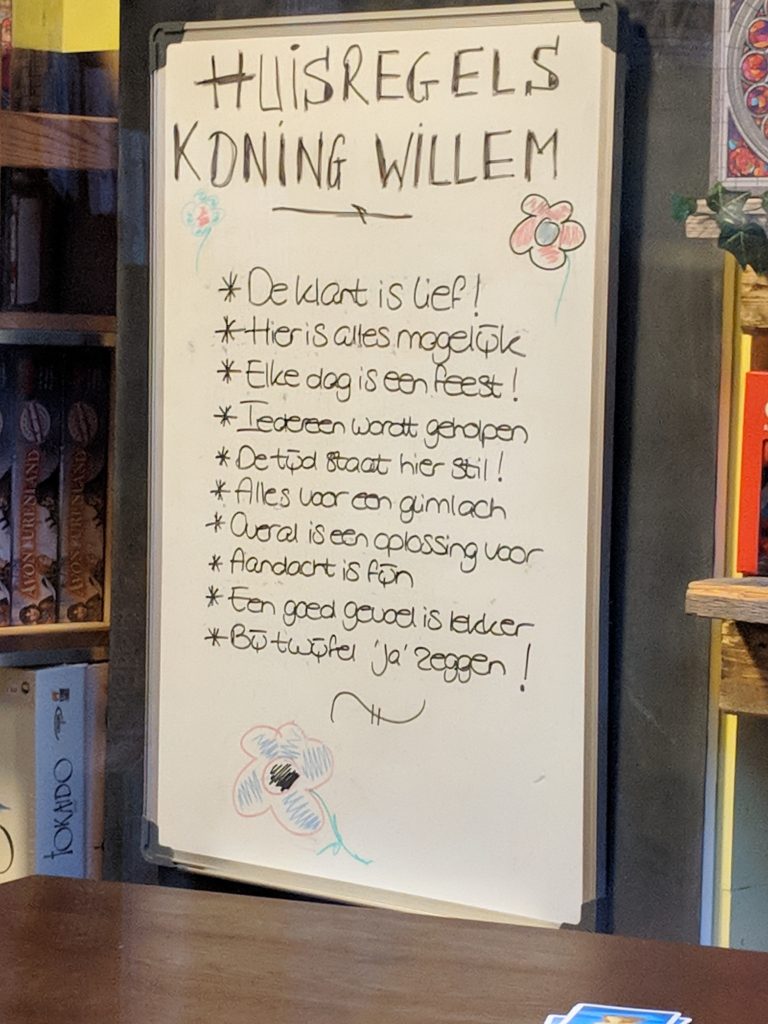 HUISREGELS
KONING WILLEM
* De klant is lief!
* Hier is alles mogelijk
* Elke dag is een feest!
* Iedereen wordt geholpen
* De tijd staat hier stil!
* Alles voor een glimlach
* Overal is een oplossing voor
* Aandacht is fijn
* Een goed gevoel is lekker
* Bij twijfel 'ja' zeggen!
AVONTURENLAND
AVONTURENLAND
TOKAIDO